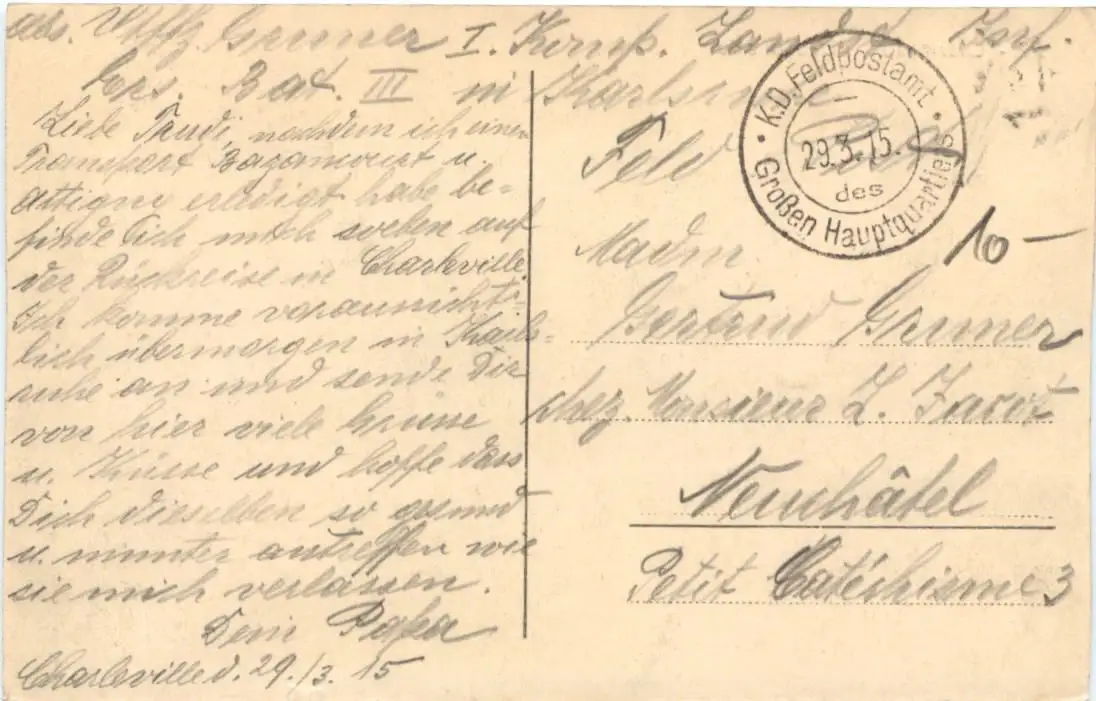 Abs. Uffz. Grüner I. Komp. Landst. Inf.
Ers. Bat. III in Karlsruhe
Liebe Trudi, nachdem ich einen
Transport Bazancourt u.
Attigny erledigt habe be-
finde ich mich soeben auf
der Rückreise in Charleville.
Ich komme voraussichti-
lich übermorgen in Karls-
ruhe an und sende Dir
von hier viele Grüsse
u. Küsse und hoffe dass
Dich dieselben so gesund
u. munter antreffen wie
sie mich verlassen.
Dein Papa
Charleville d. 29./3. 15
K.D. Feldpostamt
29.3.15.
des
Großen Hauptquartiers
Feld
10-
Madm
Gertrud Grüner
chez Monsieur L. Jacot
Neuchâtel
Petit Catéchisme 3